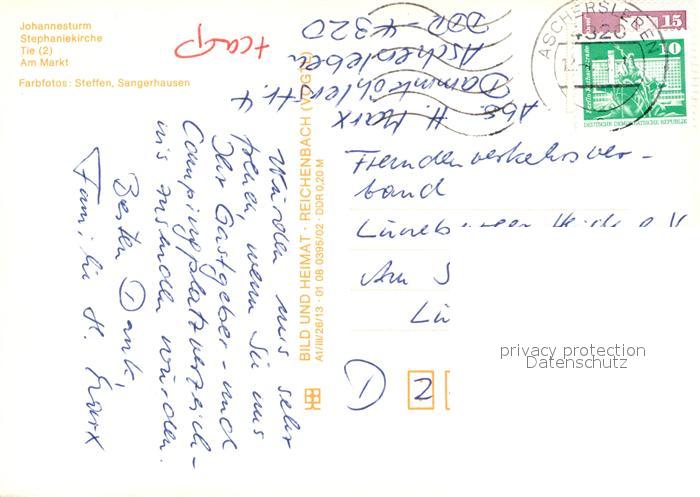 Johannesturm
Stephaniekirche
Tie (2)
Am Markt
Farbfotos: Steffen, Sangerhausen
+camp
Abs. H. Marx
Dammköhlerstr. 4
Aschersleben
DDR-4320
BILD UND HEIMAT · REICHENBACH (VOGTL)
A1/III/26/13 · 01 08 0395/02 · DDR 0,20 M
Würden uns sehr
freuen, wenn Sie uns
Ihr Gastgeber- und
Campingplatzverzeich-
nis zusenden würden.
Besten Dank,
Familie H. Marx
ASCHERSLEBEN
4320
15
10
DEUTSCHE DEMOKRATISCHE REPUBLIK
Fremdenverkehrsver-
band
Lüneburger Heide e.V.
Am
Lü
D 2
privacy protection
Datenschutz